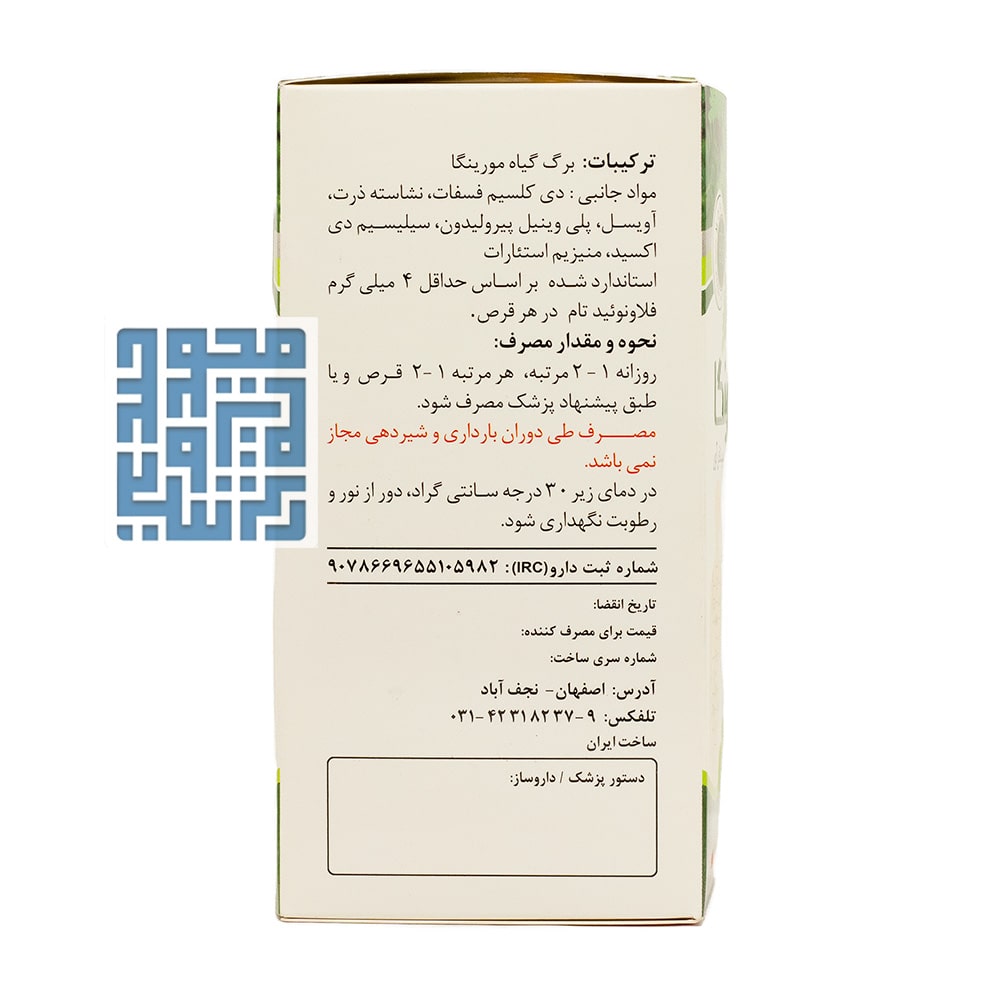 ترکیبات: برگ گیاه مورینگا
مواد جانبی : دی کلسیم فسفات، نشاسته ذرت،
آویسل، پلی وینیل پیرولیدون، سیلیسیم دی
اکسید، منیزیم استئارات
استاندارد شده بر اساس حداقل ۴ میلی گرم
فلاونوئید تام در هر قرص.
نحوه و مقدار مصرف:
روزانه ۱ - ۲ مرتبه، هر مرتبه ۱ -۲ قرص و یا
طبق پیشنهاد پزشک مصرف شود.
مصرف طی دوران بارداری و شیردهی مجاز
نمی باشد.
در دمای زیر ۳۰ درجه سانتی گراد، دور از نور و
رطوبت نگهداری شود.
شماره ثبت دارو(IRC): ۹۰۷۸۶۶۹۶۵۵۱۰۵۹۸۲
تاریخ انقضا:
قیمت برای مصرف کننده:
شماره سری ساخت:
آدرس: اصفهان- نجف آباد
تلفکس: ۹-۴۲۳۱۸۲۳۷ -۰۳۱
ساخت ایران
دستور پزشک / داروساز: